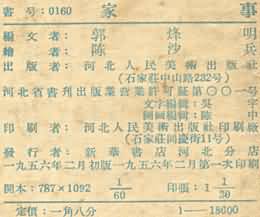 書号:0160 家事
編文者:郭烽明
繪者:陈沙兵
出版者:河北人民美術出版社
(石家莊中山路232号)
河北省書刊出版業營業許可証第〇〇一号
文字編輯:吳宇
圖画編輯:陈中
印刷者:河北人民美術出版社印刷廠
(石家莊同慶街1号)
發行者:新華書店河北分店
一九五六年二月初版一九五六年二月第一次印刷
開本:787×1092 1/60 印張:1 1/30
定價:一角八分 1—18000